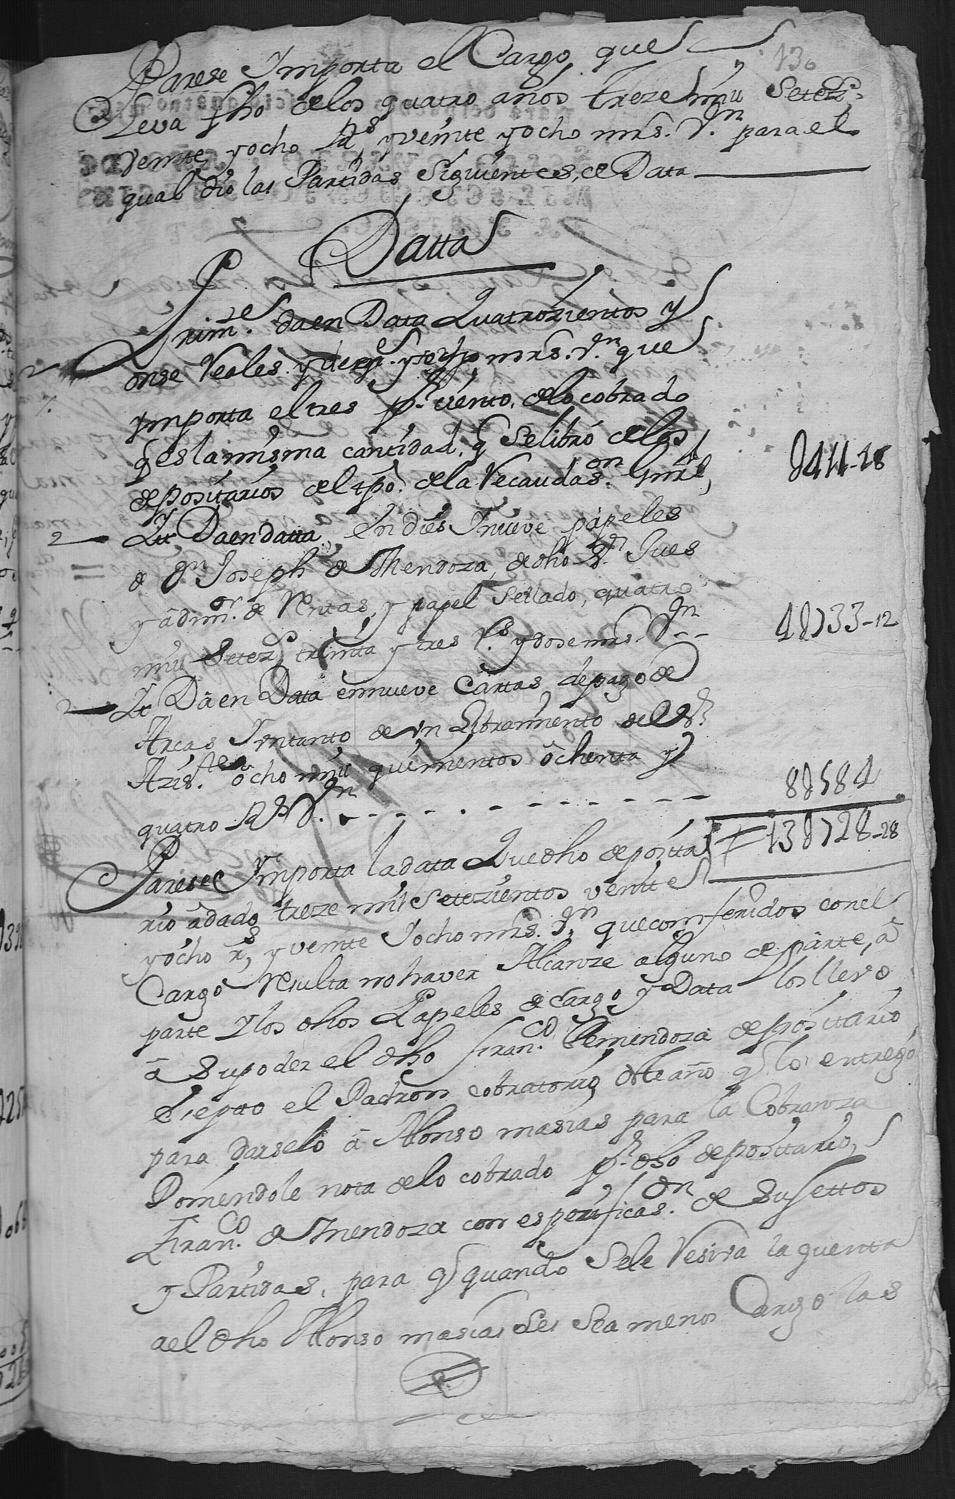 136
Parese Ymporta el Cargo que
lleva fho de los quatro años treze mill Setezs.
veinte y ocho Rs y veinte y ocho mrs. Vn para el
qual dio las Partidas Siguientes de Data
Datta
Prime. da en Data Quatrozientos y
onse Reales y dies y ocho mrs. Vn que
ymporta el tres pr. ciento de lo cobrado
q es la misma cantidad q Se libro de los
depositarios del tpo. de la Recaudason. Gral, 411-18
2 Yt Da en datta. En dies Y nueve papeles
de Dn Joseph de Mendoza, de dho Jues
y admor. de Rentas, y papel Sellado, quatro
mill Setezs. treinta y tres Rs. y dose mrs. Vn 4733-12
2 Yt Da en Data en nueve Cartas de pago de
Arcas Y en tanto de un Libramiento del
ocho mill quinientos ochenta y
quatro Rs Vn. 8584
Parese Ymporta la data Que dho deposita 13728-28
rio a dado treze mil Setezientos veinte
y ocho Rs, y veinte y ocho mrs. Vn que conferidos con el
Cargo Resulta no haver Alcanze alguno de parte a
parte Y los dhos Papeles de Cargo y Data los llevo
a Su poder el dho Franco. de mendoza depositario
Eiepto el Padron cobratorio de este año q lo entrego
para darselo a Alonso masias para la Cobranza
Poniendole nota de lo cobrado pr. dho depositario,
Franco. de Mendoza con espezificason. de Sugettos
y Partidas, para q quando Se le Resiva la quenta
a el dho Alonso masias les Sea menos Cargo las